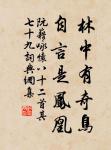 林中有奇鳥
自言是鳳凰
阮籍詠懷八十二首其
七十九詞典網集